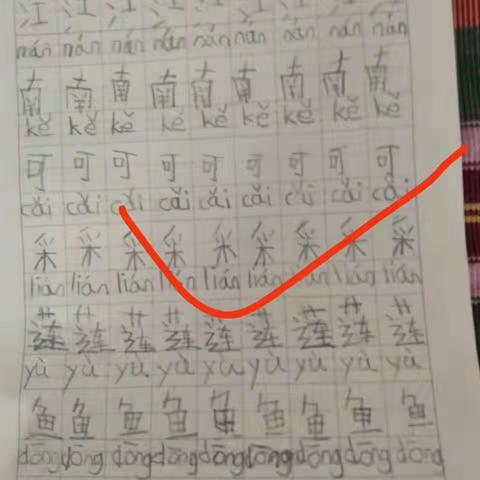 江 江 江 江 江 江 江 江 江
nán nán nán nán nán nán nán nán nán
南 南 南 南 南 南 南 南 南
kě kě kě kě kě kě kě kě kě
可 可 可 可 可 可 可 可 可
cǎi cǎi cǎi cǎi cǎi cǎi cǎi cǎi cǎi
采 采 采 采 采 采 采 采 采
lián lián lián lián lián lián lián lián lián
莲 莲 莲 莲 莲 莲 莲 莲 莲
yù yù yù yù yù yù yù yù yù
鱼 鱼 鱼 鱼 鱼 鱼 鱼 鱼 鱼
dōng dōng dōng dōng dōng dōng dōng dōng dōng